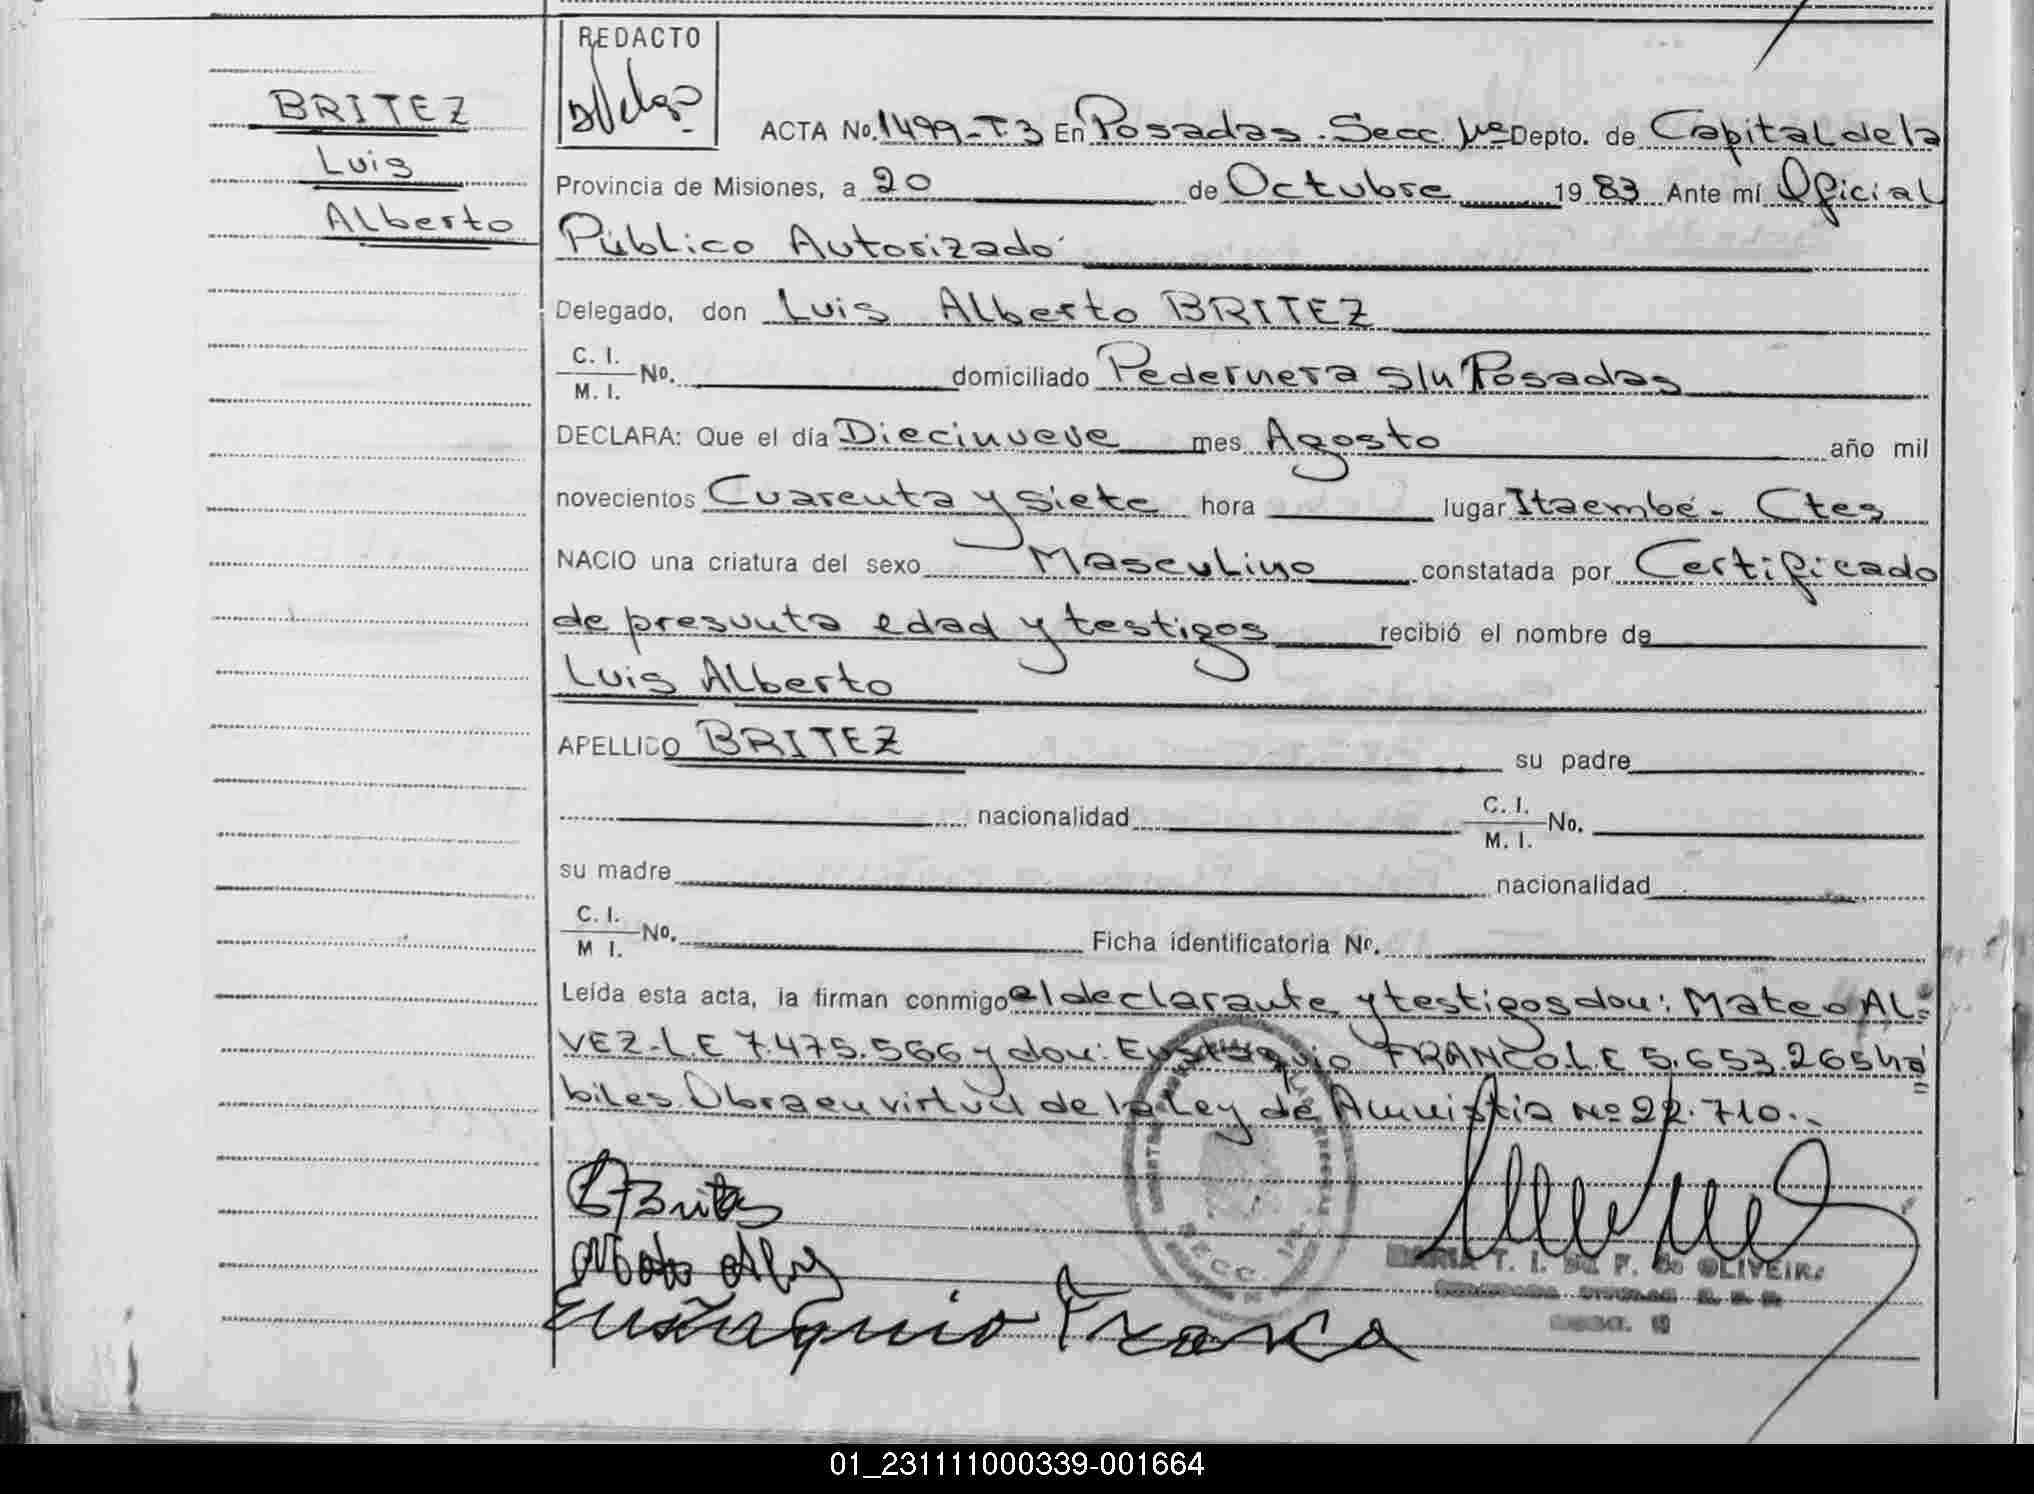 REDACTO
BRITEZ
Luis
Alberto
ACTA No. 1499-T.3 En Posadas. Secc. 1ra Depto. de Capital de la
Provincia de Misiones, a 20 de Octubre 19 83 Ante mí Oficial
Público Autorizado
Delegado, don Luis Alberto BRITEZ
C. I.
M. I. No. domiciliado Pedernera s/n Posadas
DECLARA: Que el día Diecinueve mes Agosto año mil
novecientos Cuarenta y siete hora lugar Itaembé - Ctes
NACIO una criatura del sexo Masculino constatada por Certificado
de presunta edad y testigos recibió el nombre de
Luis Alberto
APELLIDO BRITEZ su padre
nacionalidad C. I.
M. I. No.
su madre nacionalidad
C. I.
M I. No. Ficha identificatoria No.
Leída esta acta, la firman conmigo el declarante y testigos don: Mateo AL=
VEZ-L.E 7.475.566 y don: Eustaquio FRANCO L.E 5.653.265 há=
biles. Obra en virtud de la Ley de Amnistia Nº 22.710.-
Mateo Alvez
Eustaquio Franco
SECC. 1ra.
MARIA T. I. DE F. de OLIVEIRA
01_231111000339-001664